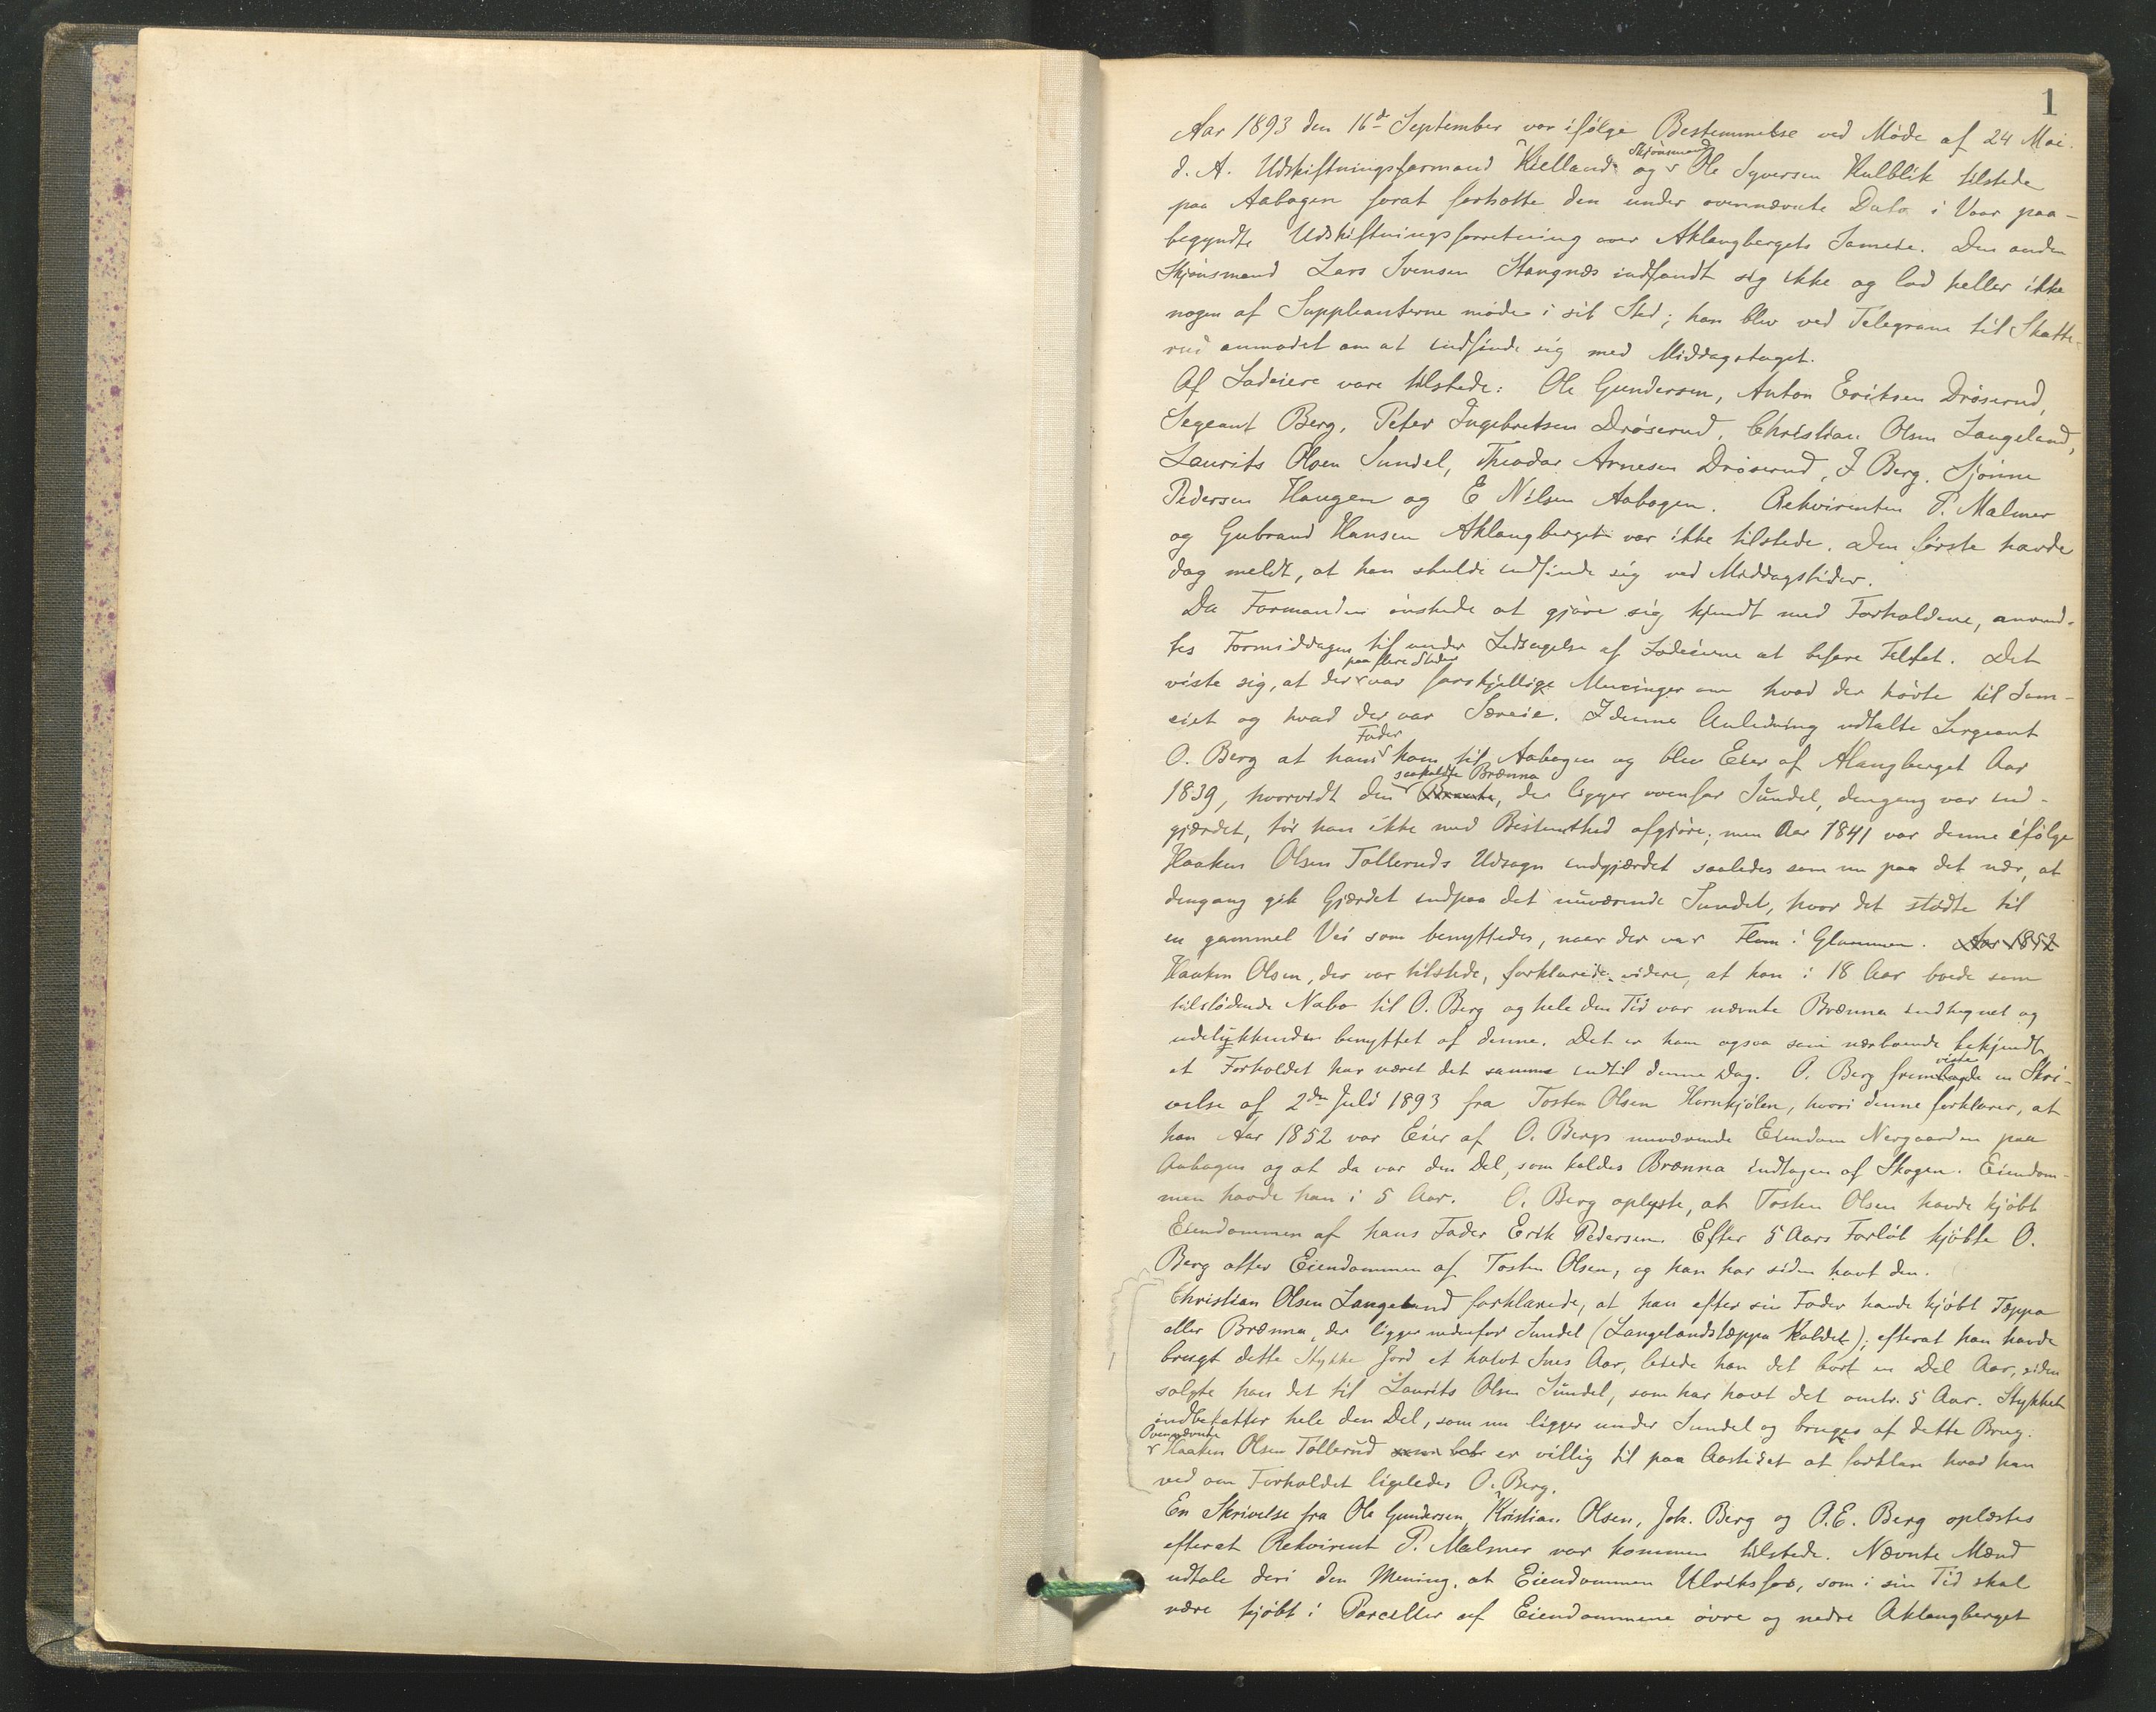 1
Aar 1893 den 16de September var ifølge Bestemmelse ved Møde af 24 Mai
d. A. Udskiftningsformand Kielland og Skjønsmand Ole Syversen Kulblik tilstede
paa Aabogen forat fortsætte den under ovennævnte Dato i Vaar paa-
begyndte Udskiftningsforretning over Aklangbergets Sameie. Den anden
Skjønsmand Lars Svensen Stangnæs indfandt sig ikke og lod heller ikke
nogen af Suppleanterne møde i sit Sted; han blev ved Telegram til Skotte-
rud anmodet om at indfinde sig med Middagstoget.
Af Lodeiere vare tilstede: Ole Gundersen, Anton Eriksen Drøserud,
Segeant Berg, Peter Ingebretsen Drøserud, Christian Olsen Langeland,
Laurits Olsen Sundel, Theodor Arnesen Drøserud, J Berg, Sjønne
Pedersen Haugen og E Nilsen Aabogen. Rekvirenten P. Malmer
og Gubrand Hansen Aklangberget var ikke tilstede. Den første havde
dog meldt, at han skulde indfinde sig ved Middagstider.
Da Formanden ønskede at gjøre sig kjendt med Forholdene, anvend-
tes Formiddagen til under Ledsagelse af Lodeierne at befare Feltet. Det
viste sig, at der paa flere Steder var forskjellige Meninger om hvad der hørte til Sam-
eiet og hvad der var Særeie. I denne Anledning udtalte Sergeant
O. Berg at hans Fader kom til Aabogen og blev Eier af Alangberget Aar
1839, hvorvidt den saakaldte Brænna, der ligger ovenfor Sundel, dengang var ind-
gjærdet, tør han ikke med Bestemthed afgjøre; men Aar 1841 var denne ifølge
Haaken Olsen Tolleruds Udsagn indgjærdet saaledes som nu paa det nær, at
dengang gik Gjærdet indpaa det nuværende Sundel, hvor det stødte til
en gammel Vei som benyttedes, naar der var Flom i Glommen. Aar 1852
Haaken Olsen, der var tilstede, forklarede videre, at han i 18 Aar boede som
tilstødende Nabo til O. Berg og hele den Tid var nævnte Brænna indhegnet og
udelukkende benyttet af denne. Det er ham ogsaa som nærboende bekjendt
at Forholdet har været det samme indtil denne Dag. O. Berg fremviste en Skri-
velse af 2den Juli 1893 fra Tosten Olsen Hornkjølen, hvori denne forklarer, at
han Aar 1852 var Eier af O. Bergs nuværende Eiendom Nergaarden paa
Aabogen og at da var den Del, som kaldes Brænna indtagen af Skogen. Eiendom-
men havde han i 5 Aar. O. Berg oplyste, at Tosten Olsen havde kjøbt
Eiendommen af hans Fader Erik Pedersen. Efter 5 Aars Forløb kjøbte O.
Berg atter Eiendommen af Tosten Olsen, og han har siden havt den.
Christian Olsen Langeland forklarede, at han efter sin Fader havde kjøbt Tæppa
eller Brænna, der ligger nedenfor Sundel (Langelandstæppa kaldet); efterat han havde
brugt dette Stykke Jord et halvt Snes Aar, leiede han det bort en Del Aar, siden
solgte han det til Laurits Olsen Sundel, som har havt det omtr. 5 Aar. Stykket
indbefatter hele den Del, som nu ligger under Sundel og bruges af dette Brug.
Ovennævnte Haaken Olsen Tollerud er villig til paa Aastedet at forklare hvad han
ved om Forholdet ligeledes O. Berg.
En Skrivelse fra Ole Gundersen, Kristian Olsen, Joh. Berg og O.E. Berg oplæstes
efterat Rekvirent P. Malmer var kommen tilstede. Nævnte Mænd
udtale deri den Mening, at Eiendommen Ulriksfos, som i sin Tid skal
være kjøbt i Parceller af Eiendommene øvre og nedre Aklangberget